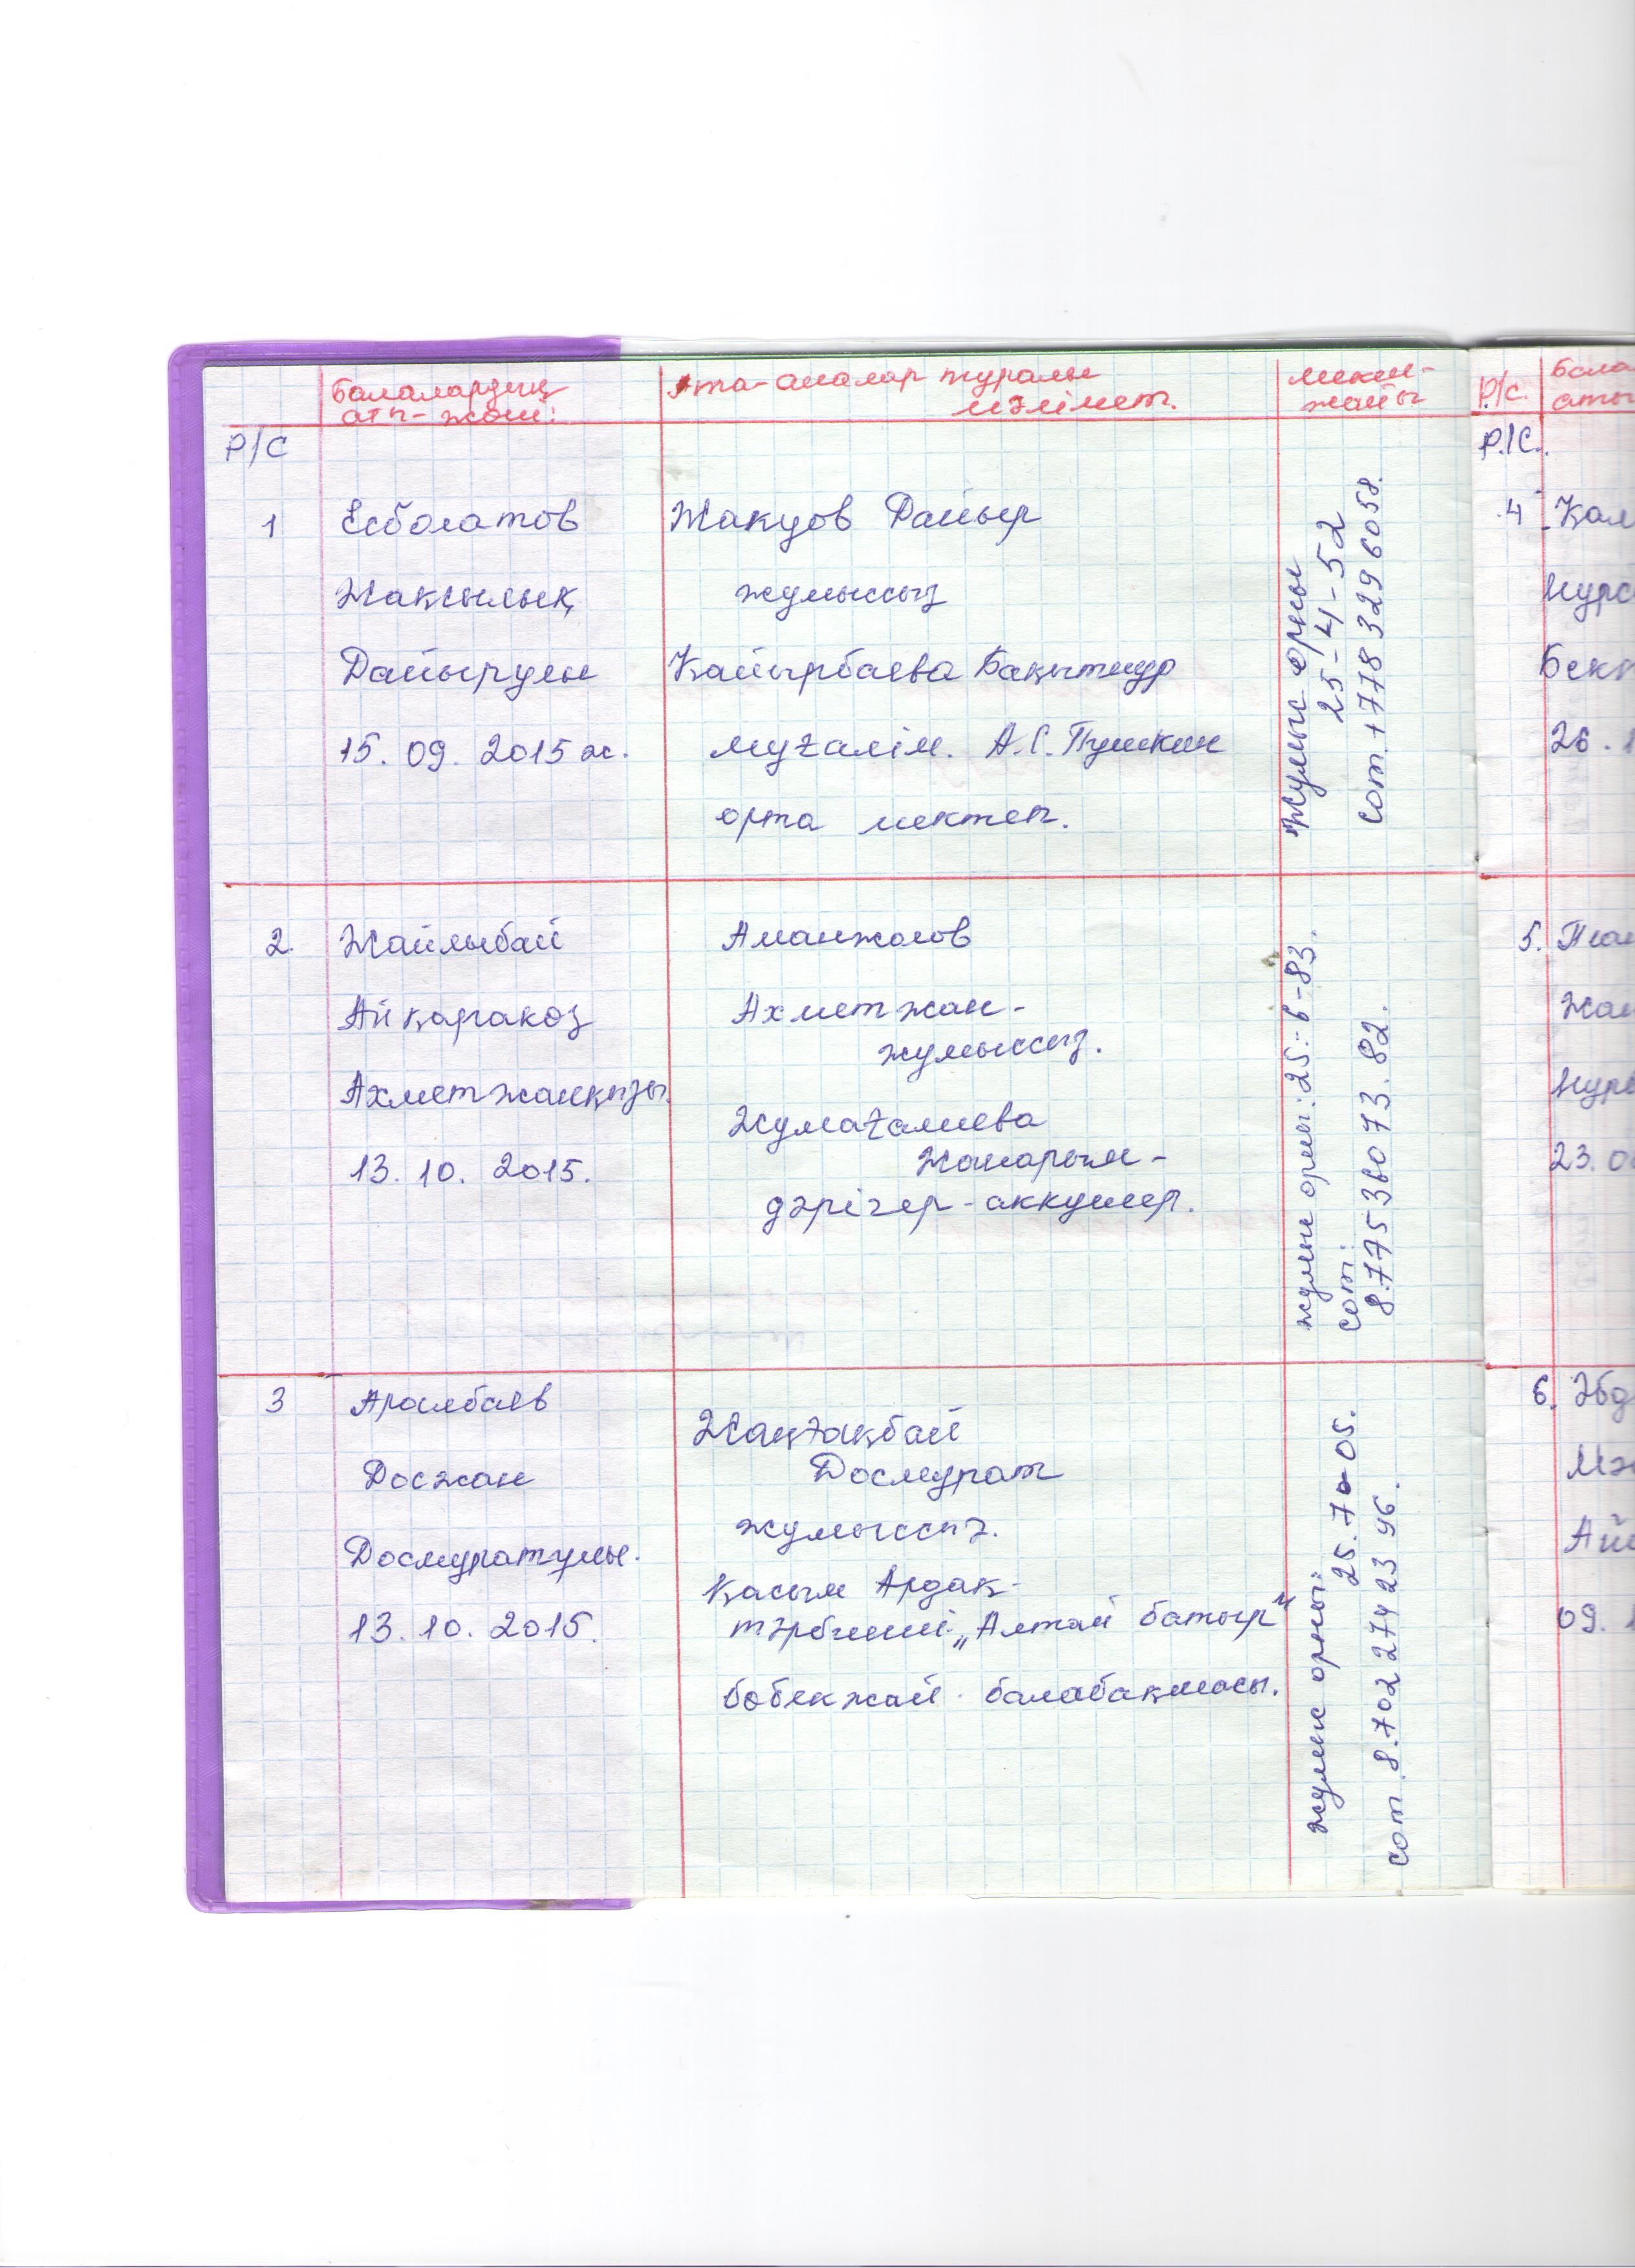 Балалардың
аты-жөні:
Ата-аналар туралы
мәлімет.
мекен-
жайы
Р/С
1
Есболатов
Жақсылық
Дайырұлы
15. 09. 2015 ж.
Жакуов Дайыр
жұмыссыз
Қайырбаева Бақытнұр
мұғалім. А.С. Пушкин
орта мектеп.
Жұмыс орны
25-4-52
сот. +77783296058.
2.
Жайлыбай
Айқаракөз
Ахметжанқызы
13. 10. 2015.
Аманжолов
Ахметжан-
жұмыссыз.
Жұмағалиева
Жанарым-
дәрігер-аккушер.
жұмыс орны: 25:-6-83.
сот:
8.775 360 73. 82.
3
Аралбаев
Досжан
Досмұратұлы.
13. 10. 2015.
Жанғақбай
Досмұрат
жұмыссыз.
Қасым Ардақ-
тәрбиеші „Алтай батыр"
бөбекжай балабақшасы.
жұмыс орны:
25.70-05.
сот. 8.702 274 23 96.
Р/С.
Бала
аты
Р./С.
4
Қал
Нұрс
Бект
26.
5.
Жан
Нұрб
23. 0
6.
Әбд
Мә
Ай
09.